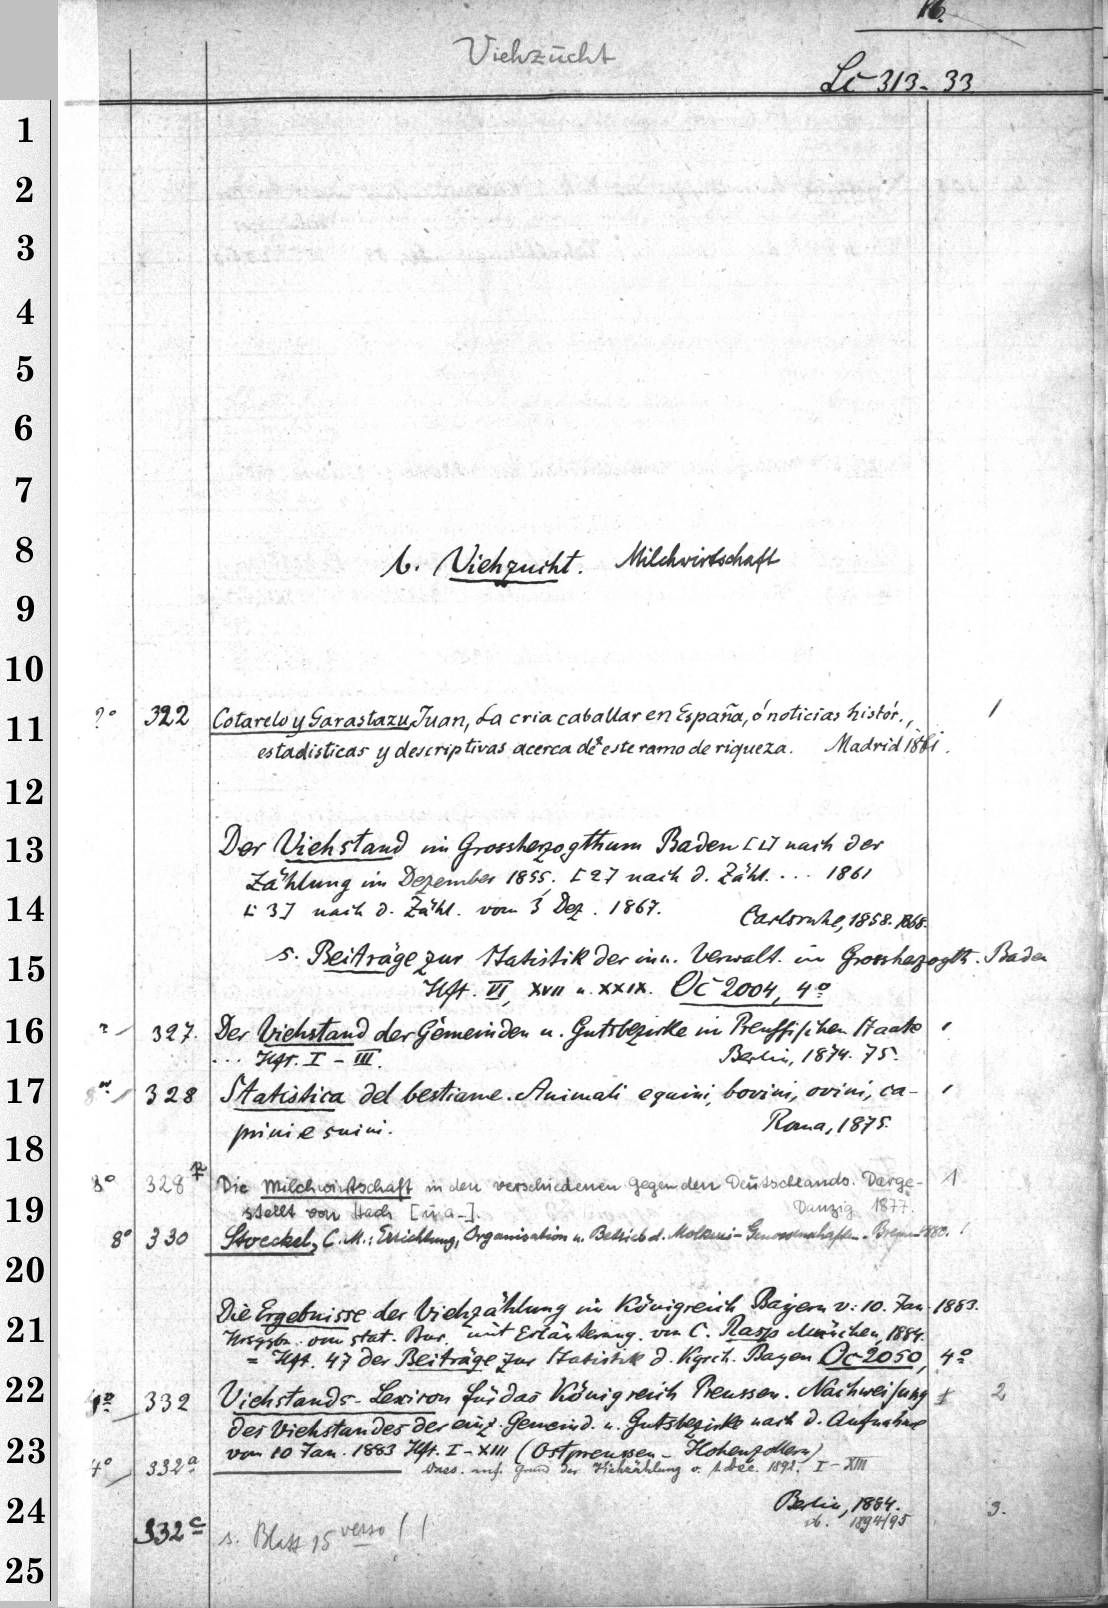 16.
Viehzucht
Lc 313-33
1
2
3
4
5
6
7
8
b. Viehzucht. Milchwirtschaft
9
10
11
322 Cotarelo y Garastazu, Juan, La cria caballar en España, ó noticias histór., 1
estadisticas y descriptivas acerca de este ramo de riqueza. Madrid 1861.
12
13
Der Viehstand im Grossherzogthum Baden [1] nach der
Zählung im Dezember 1855, [2] nach d. Zähl. ... 1861
14
[3] nach d. Zähl. vom 3 Dez. 1867. Carlsruhe, 1858. 1868.
15
s. Beiträge zur Statistik der inn. Verwalt. im Grossherzogth. Baden
Hft. VI, XVII u. XXIX. Oc 2004, 4º
16
327. Der Viehstand der Gemeinden u. Gutsbezirke im Preussischen Staate
... Hft. I - III. Berlin, 1874. 75.
17
328 Statistica del bestiame. Animali equini, bovini, ovini, ca-
prini e suini. Roma, 1875.
18
8º 328 Die Milchwirtschaft in den verschiedenen Gegenden Deutschlands. Darge- 1
19
stellt von Hach [u.a.]. Danzig 1877.
8º 330 Stoeckel, C. M.: Errichtung, Organisation u. Betrieb d. Molkerei-Genossenschaften. Bremen 1880. 1
20
Die Ergebnisse der Viehzählung im Königreich Bayern v. 10. Jan. 1883.
21
Hrsggbn. vom stat. Bur. mit Erläuterung. von C. Rasp München, 1884.
= Hft. 47 der Beiträge zur Statistik d. Kgrch. Bayern Oc 2050, 4º
22
4º 332 Viehstands-Lexicon für das Königreich Preussen. Nachweisung 2
des Viehstandes der einz. Gemeind. u. Gutsbezirke nach d. Aufnahme
23
vom 10 Jan. 1883 Hft. I-XIII (Ostpreussen - Hohenzollern)
4º 332a Dass. auf Grund der Viehzählung v. 1. Dec. 1892. I-XIII
24
Berlin, 1884. 3.
ib. 1894/95
332c s. Blatt 15 verso !!
25